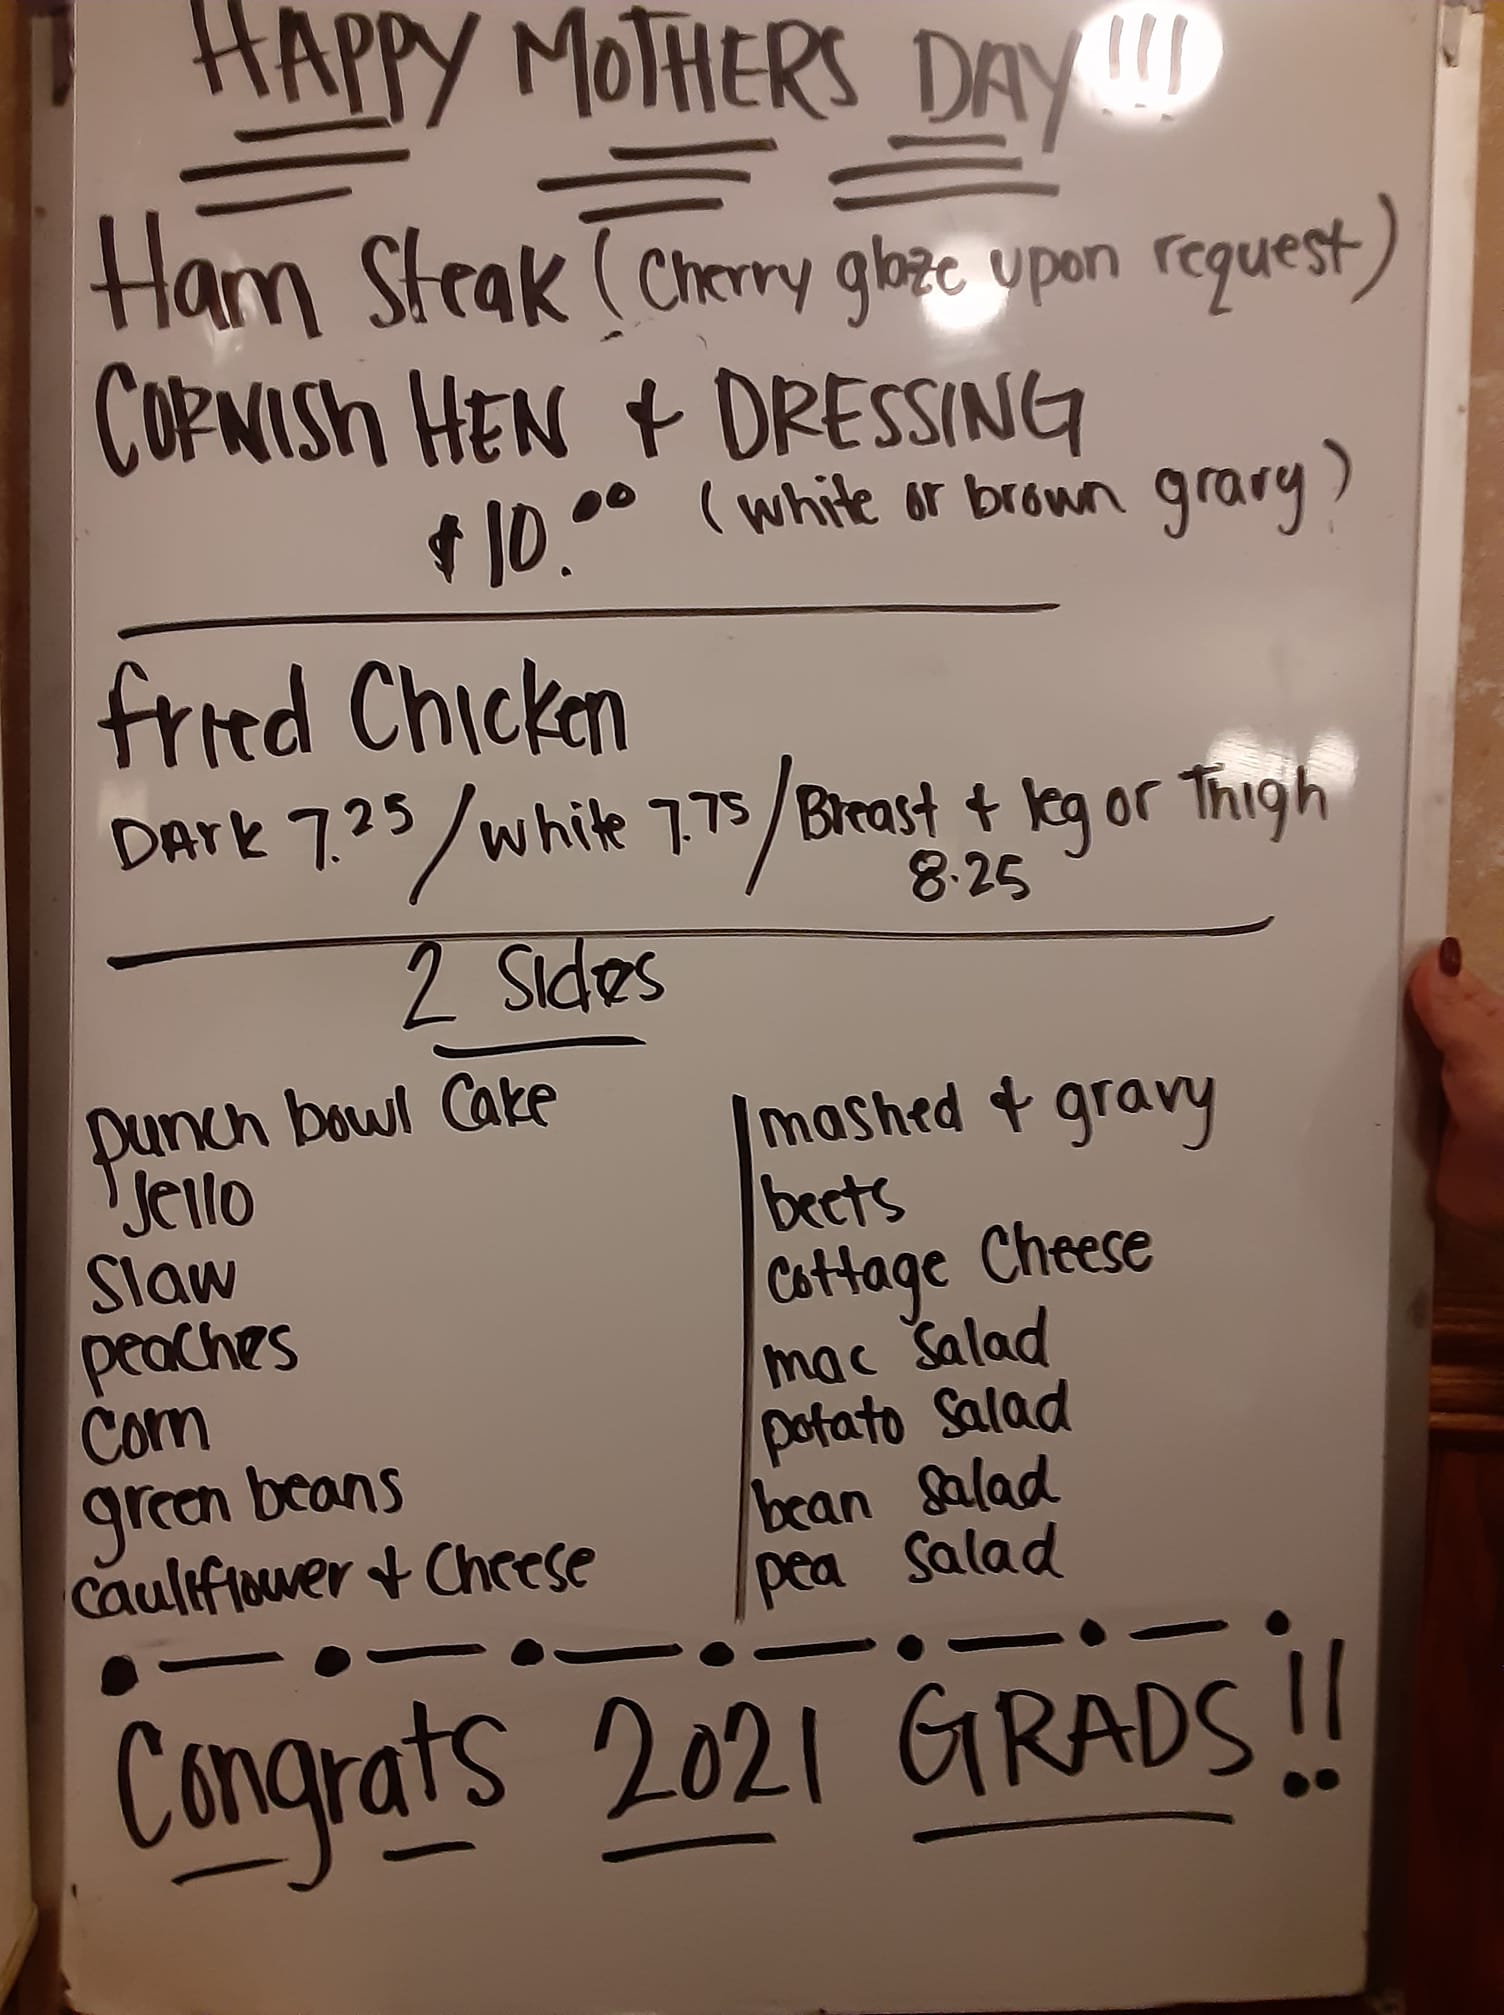 HAPPY MOTHERS DAY!!!
Ham Steak (Cherry glaze upon request)
CORNISh HEN & DRESSING
$10.00 (white or brown gravy)
fried Chicken
DArk 7.25 / white 7.75 / Breast & leg or Thigh
8.25
2 Sides
punch bowl Cake
Jello
Slaw
peaches
Corn
green beans
cauliflower & Cheese
mashed & gravy
beets
cottage Cheese
mac Salad
potato Salad
bean Salad
pea Salad
Congrats 2021 GRADS!!